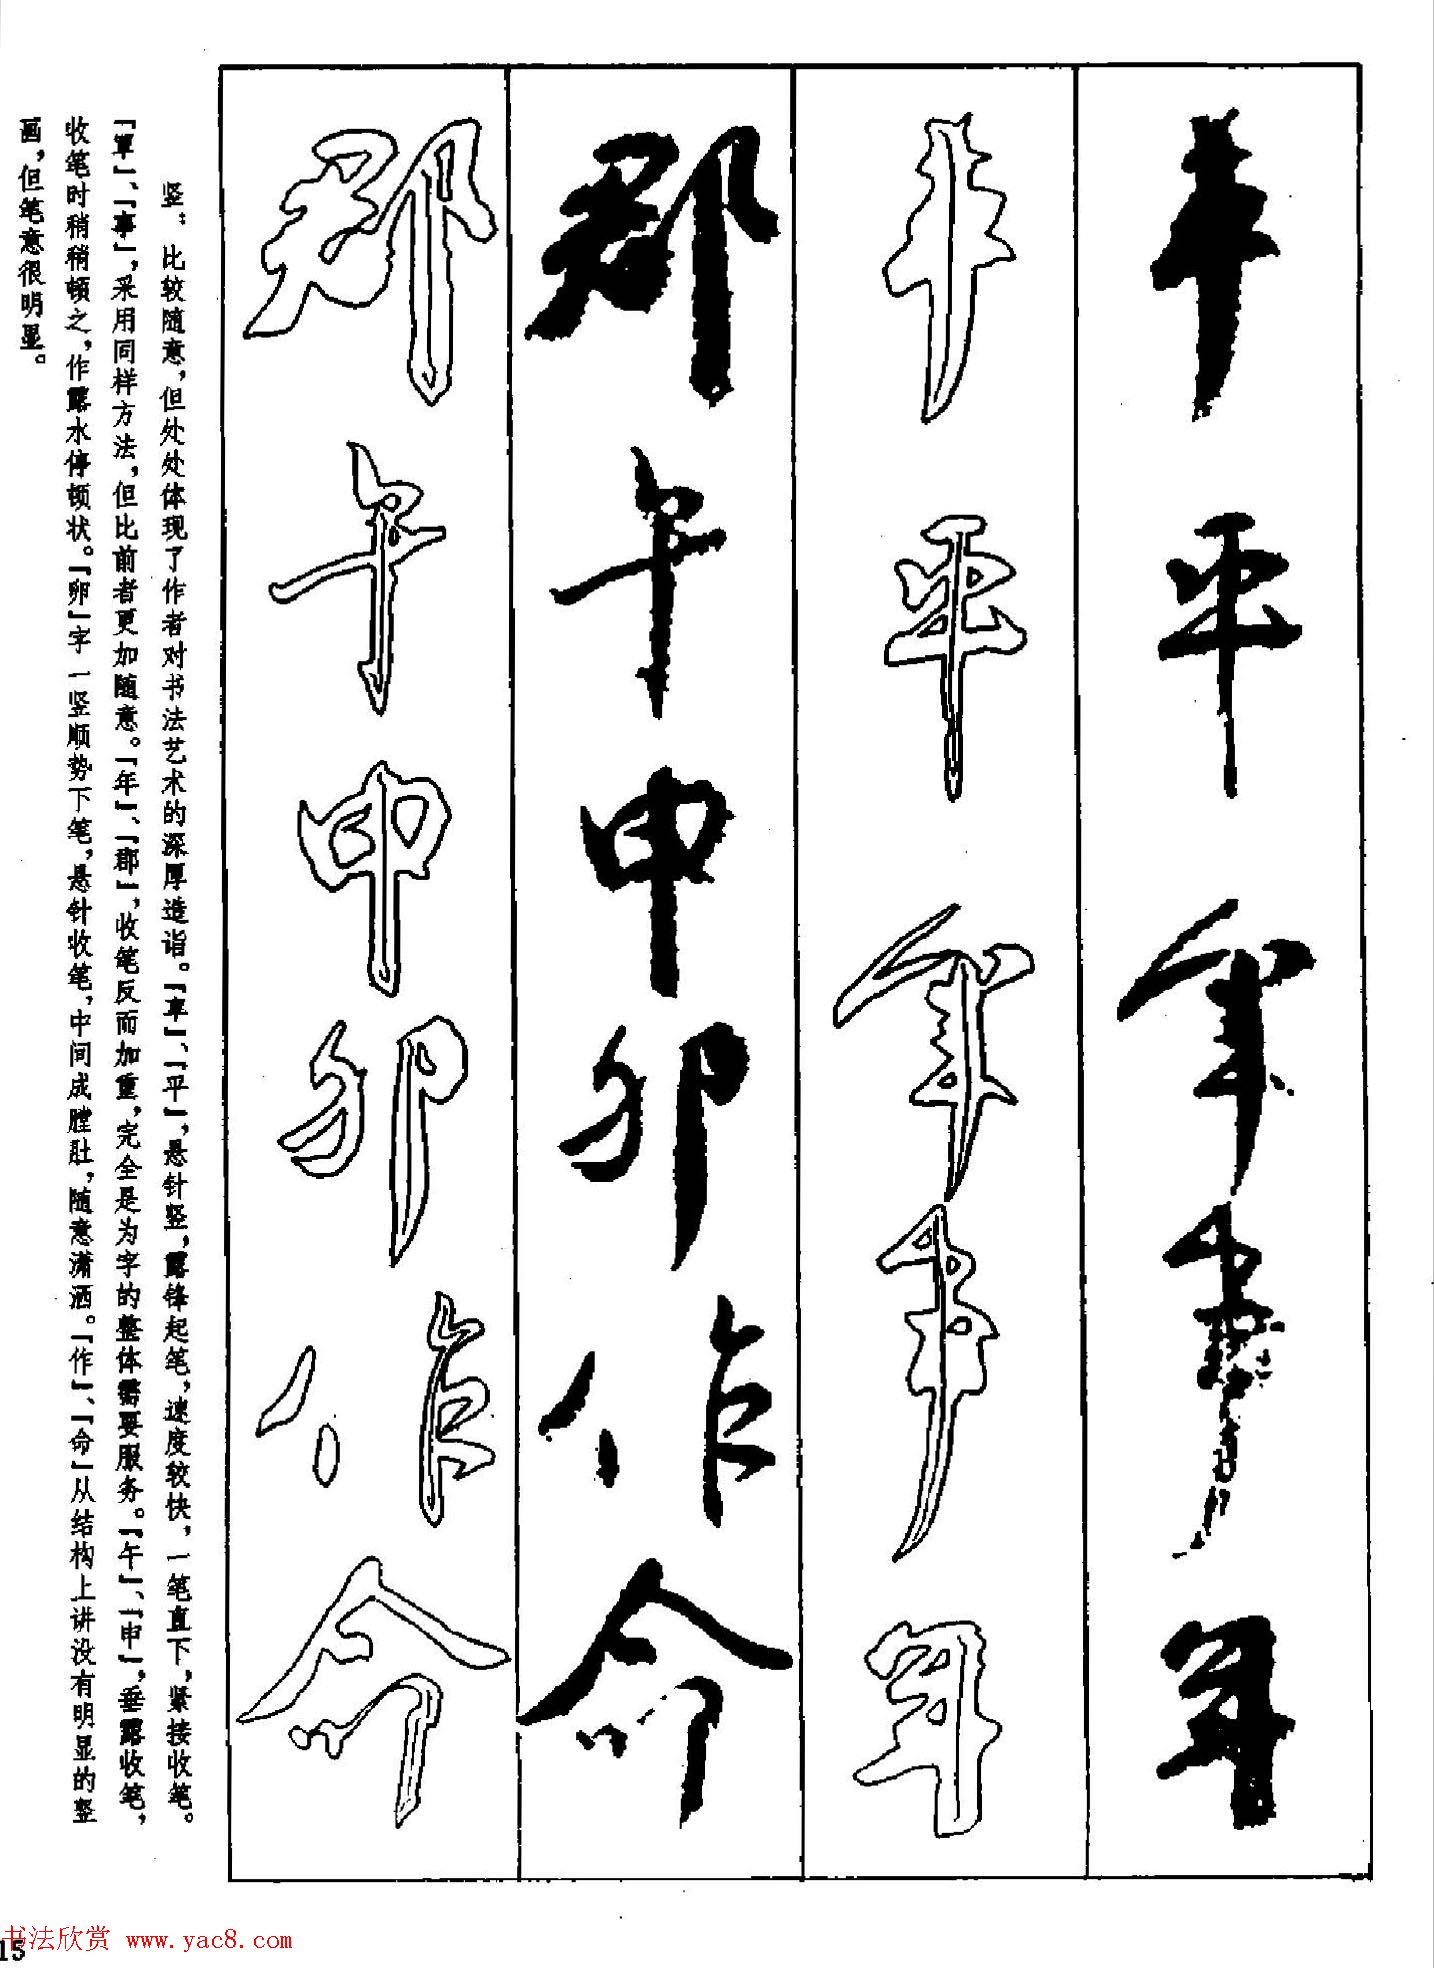 郡
午
申
卯
作
命
平
年
竖：比较随意，但处处体现了作者对书法艺术的深厚造诣。「享」、「平」，悬针竖，露锋起笔，速度较快，一笔直下，紧接收笔。
「覃」、「事」，采用同样方法，但比前者更加随意。「年」、「郡」，收笔反而加重，完全是为字的整体需要服务。「午」、「申」，垂露收笔，
收笔时稍稍顿之，作露水停顿状。「卵」字一竖顺势下笔，悬针收笔，中间成膛肚，随意潇洒。「作」、「命」从结构上讲没有明显的竖
画，但笔意很明显。
书法欣赏 www.yac8.com
15